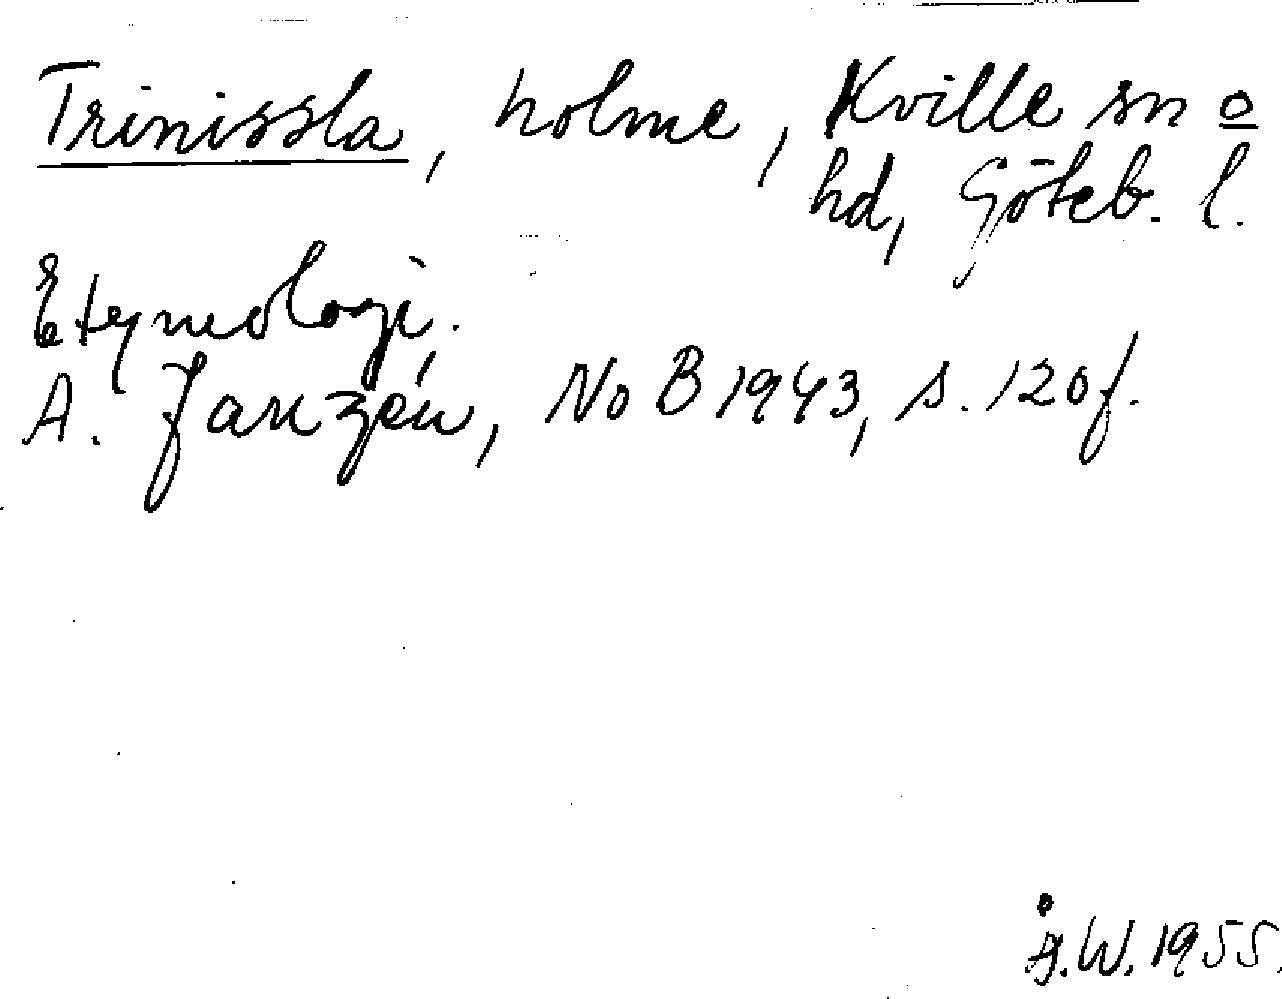 Trinissla, holme, Kville sn o
hd, Göteb. l.
Etymologi.
A. Janzén, NoB 1943, s. 120f.
Å.W. 1955.